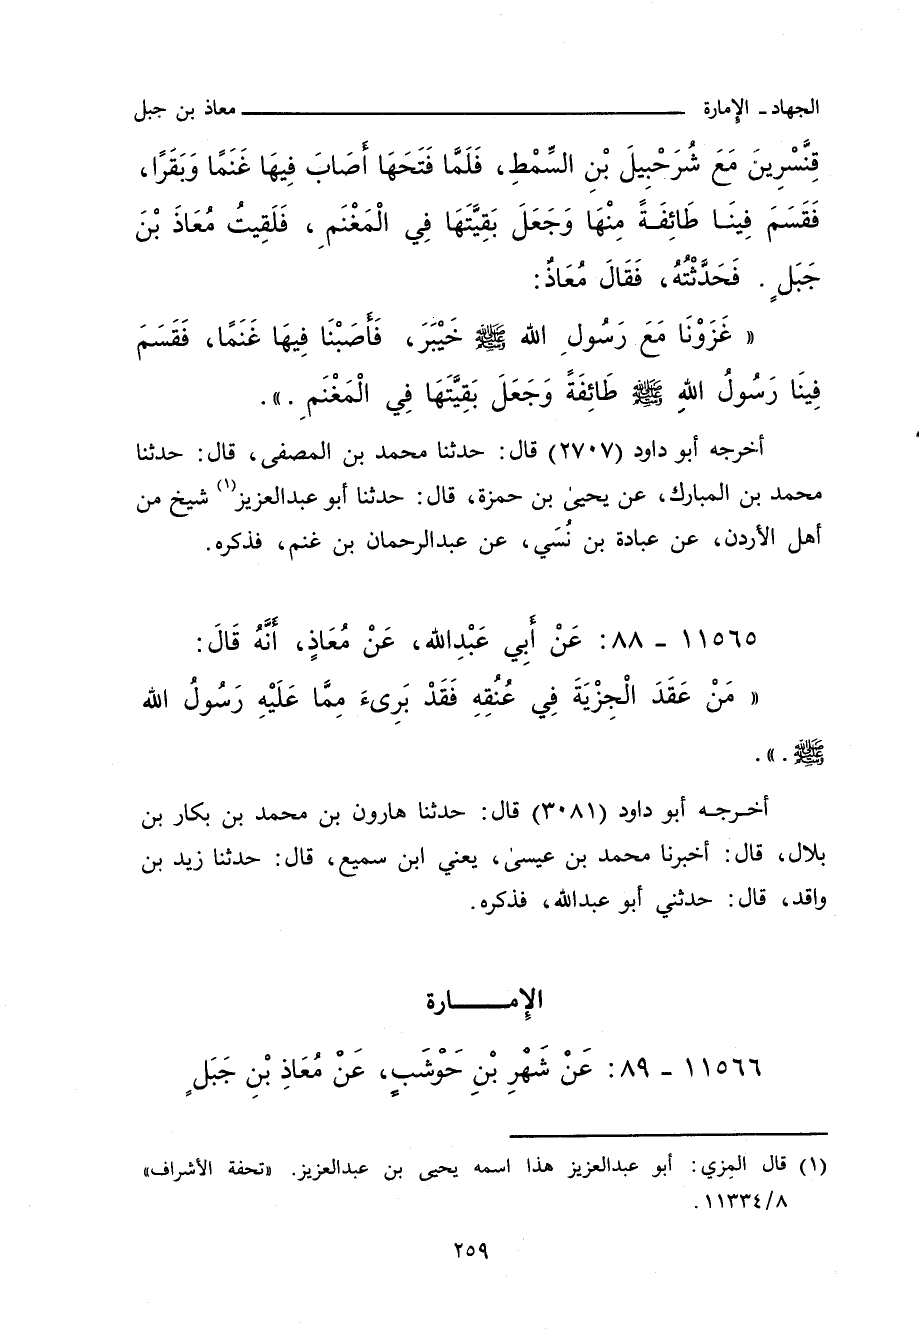 الجهاد ـ الإمارة ـــــــــــــــــــــ معاذ بن جبل
قِنَّسْرِينَ مَعَ شُرَحْبِيلَ بْنِ السِّمْطِ، فَلَمَّا فَتَحَهَا أَصَابَ فِيهَا غَنَمًا وَبَقَرًا،
فَقَسَمَ فِينَا طَائِفَةً مِنْهَا وَجَعَلَ بَقِيَّتَهَا فِي الْمَغْنَمِ، فَلَقِيتُ مُعَاذَ بْنَ
جَبَلٍ. فَحَدَّثْتُهُ، فَقَالَ مُعَاذٌ:
« غَزَوْنَا مَعَ رَسُولِ الله ﷺ خَيْبَرَ، فَأَصَبْنَا فِيهَا غَنَمًا، فَقَسَمَ
فِينَا رَسُولُ اللهِ ﷺ طَائِفَةً وَجَعَلَ بَقِيَّتَهَا فِي الْمَغْنَمِ.».
أخرجه أبو داود (٢٧٠٧) قال: حدثنا محمد بن المصفى، قال: حدثنا
محمد بن المبارك، عن يحيىٰ بن حمزة، قال: حدثنا أبو عبدالعزيز(١) شيخ من
أهل الأردن، عن عبادة بن نُسَي، عن عبدالرحمان بن غنم، فذكره.
١١٥٦٥ ـ ٨٨: عَنْ أَبِي عَبْدِالله، عَنْ مُعَاذٍ، أَنَّهُ قَالَ:
« مَنْ عَقَدَ الْجِزْيَةَ فِي عُنُقِهِ فَقَدْ بَرِىءَ مِمَّا عَلَيْهِ رَسُولُ الله
ﷺ.».
أخرجه أبو داود (٣٠٨١) قال: حدثنا هارون بن محمد بن بكار بن
بلال، قال: أخبرنا محمد بن عيسىٰ، يعني ابن سميع، قال: حدثنا زيد بن
واقد، قال: حدثني أبو عبدالله، فذكره.
الإمـــــارة
١١٥٦٦ ـ ٨٩: عَنْ شَهْرِ بْنِ حَوْشَبٍ، عَنْ مُعَاذِ بْنِ جَبَلٍ
(١) قال المِزي: أبو عبدالعزيز هذا اسمه يحيى بن عبدالعزيز. «تحفة الأشراف»
٨/١١٣٣٤.
٢٥٩